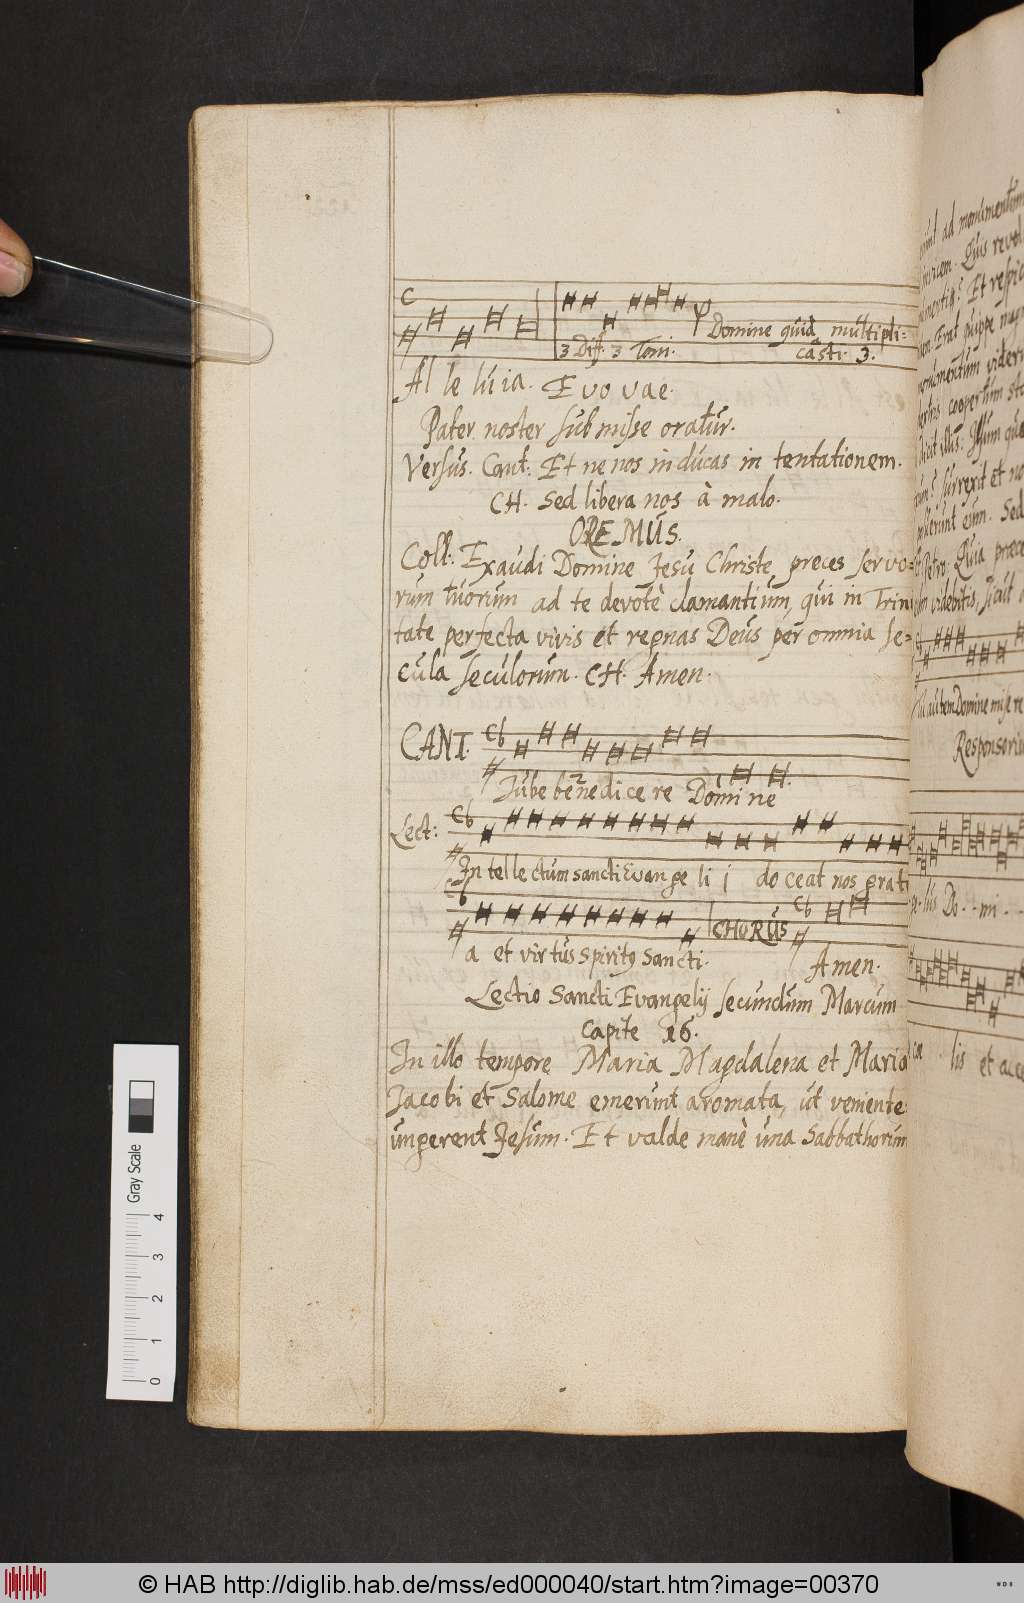 Domine quid multipli=
3 Diff. 3 Toni. casti. 3.
Al le lu ia. E vo vae.
Pater noster submisse oratur.
Versus. Cant: Et ne nos inducas in tentationem.
CH. Sed libera nos à malo.
OREMUS.
Coll: Exaudi Domine Jesu Christe, preces servo=
rum tuorum ad te devotè clamantium, qui in Trini
tate perfecta vivis et regnas Deus per omnia se=
cula seculorum. CH. Amen.
CANT.
Jube benedicere Domine
Lect:
Intellectum sancti Evangelij doceat nos grati
CHORUS
a et virtus Spiritus Sancti. Amen.
Lectio Sancti Evangelij secundum Marcum
Capite 16.
In illo tempore Maria Magdalena et Maria
Jacobi et Salome emerunt aromata, ut veniente
ungerent Jesum. Et valde manè una Sabbathorum
ad monumentum
Quis revol
Et respic
Erat quippe
monumentum viderunt
coopertum
surrexit et no
eum. Sed
Petro. Quia
videbitis, sicut
Tu autem Domine misere
Responsoriu
Do - - mi - -
lis et acce
Gray Scale
4
3
2
1
0
© HAB http://diglib.hab.de/mss/ed000040/start.htm?image=00370